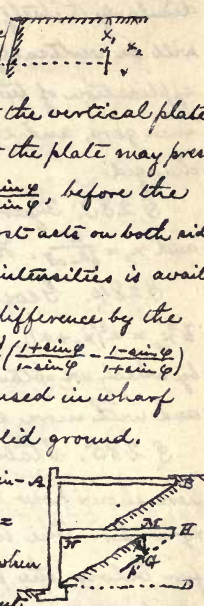 x₁
x₂
the vertical plate
the plate may pres
sin φ / sin φ, before the
st acts on both sid
intensities is avail
difference by the
(1+sin φ / 1-sin φ - 1-sin φ / 1+sin φ)
used in wharf
lid ground.
in- A B
N M H
=
when G
D